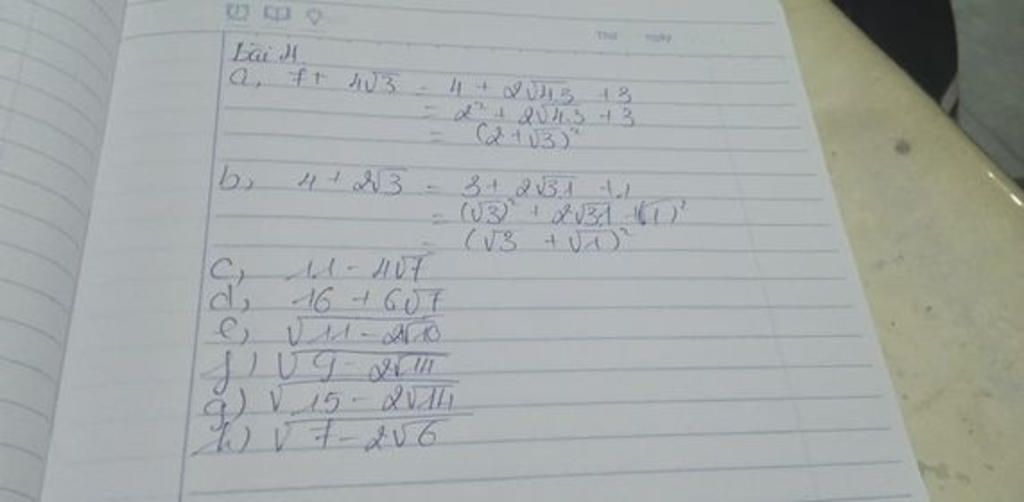 Bài 4
a, 7 + 4√3 = 4 + 2√4.3 + 3
= 2² + 2√4.3 + 3
= (2 + √3)²
b, 4 + 2√3 = 3 + 2√3.1 + 1
= (√3)² + 2√3.1 + (√1)²
= (√3 + √1)²
c, 11 - 4√7
d, 16 + 6√7
e) √11 - 2√10
f) √9 - 2√14
g) √15 - 2√14
h) √7 - 2√6